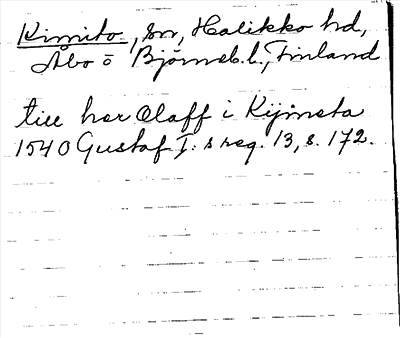 Kimito, sn, Halikko hd,
Åbo o Björneb. l., Finland
till her Olaff i Kijmeta
1540 Gustaf I:s reg. 13, s. 172.